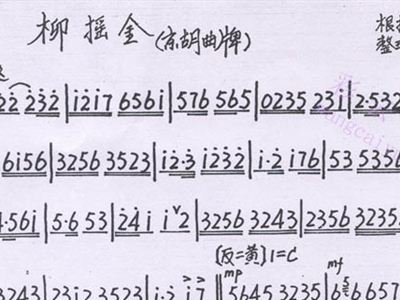 柳摇金(京胡曲牌) 根
整
22 232 | i2i7 656i | 576 565 | 0235 23i | 2·532
6i56 | 3256 3523 | i2·3 i232 | i·2 i76 | 53 5356
4·56i | 5·6 53 | 24i i2 | 3256 3243 | 2356 3235
(反=黄) 1=C
mp mf
3243 | 23i2 3523 | i·2 i7 || 5645 3235 | 6 6657